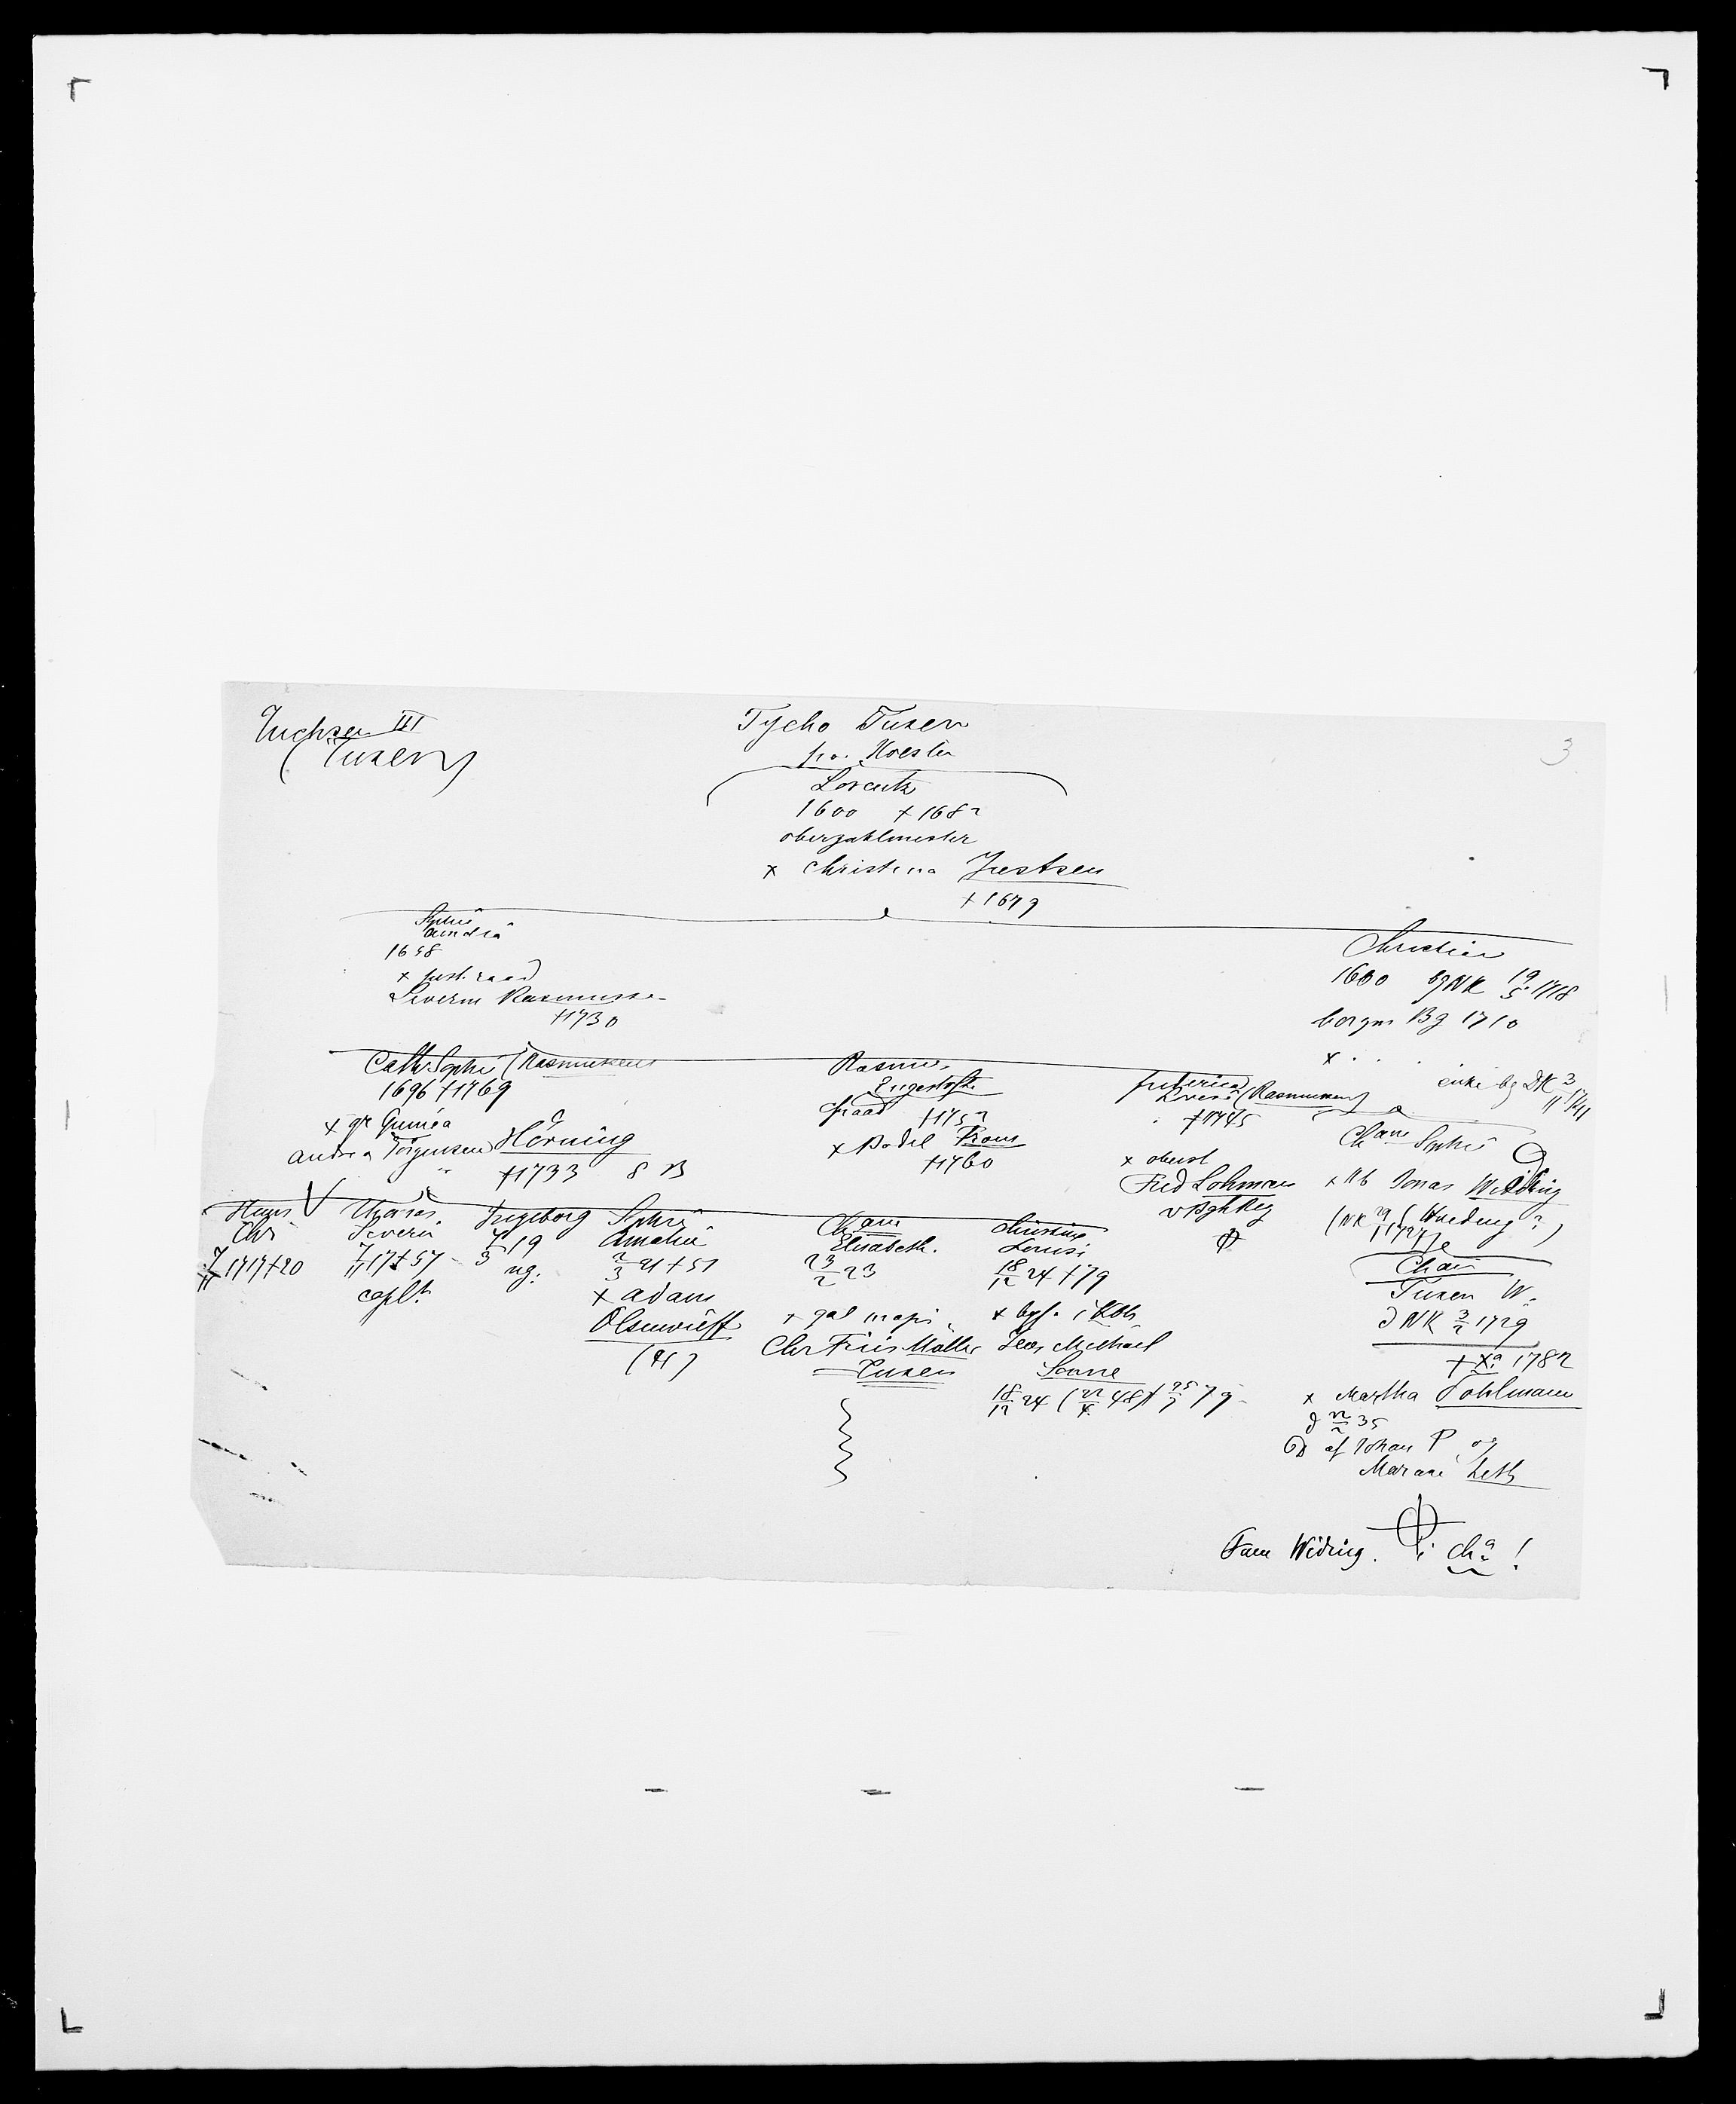 Tuchsen III
(Tuxen)
3
Tycho Tuxen
Lorentz
1600 +1682
oberzahlmester
x Christina Jestsen
+1679
Sophie
Amalia
1658
x Just. raad
Severin Rasmussen
+1730
Christian
1660 bg NK 19/5 1718
borgm Bg 1710
x . . .
enke bg DK 3/11 1741
Cath Sophie (Rasmussen)
1696 +1769
x gr Guinea
Andrea Jörgensen Hörning
+1733 8 B
Rasmus
Engestofte
+1752
x Bodil From
+1760
Frederica
Lovise (Rasmussen)
+1745
x oberst
Fred Lohman
Φ
Chane Sophie
x Jonas Wedding
(NK 29/1 1727 (Wueding?)
Hans
Chr
7/11 1717+20
Thomas
Severin
7/11 17+57
captl.
Ingeborg
5/3 19
ug.
Sophie
Amalia
2/3 21+51
x Adam
Olsenwieff
(4)
Chane
Elisabeth.
23/2 23
Chr Friis Møller
=Tuxen
Christine
Louise
18/12 24+79
x bgf. i Kbh
Jens Michael
Sonne
18/12 24 (22/4 48) + 25/7 79
Chan
Tuxen W.
d NK 3/2 1729
+ Xa 1782
x Martha Pohlmann
d 22/2 35
D af Johan P og
Marane Leth
Fam Wöding. Φ i cha!